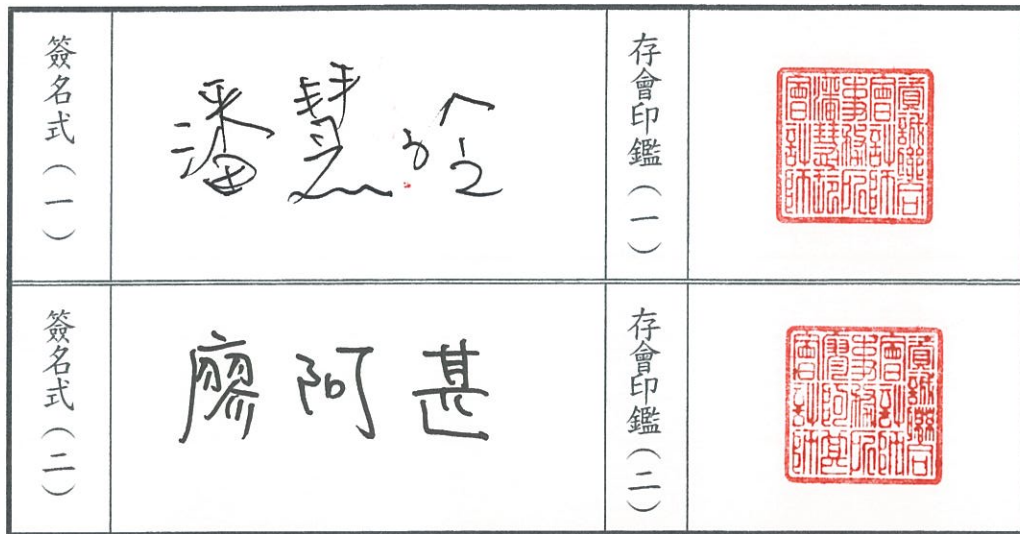 簽名式(一)
潘慧玲
存會印鑑(一)
資誠聯合
會計師
事務所
潘慧玲
會計師
簽名式(二)
廖阿甚
存會印鑑(二)
資誠聯合
會計師
事務所
廖阿甚
會計師